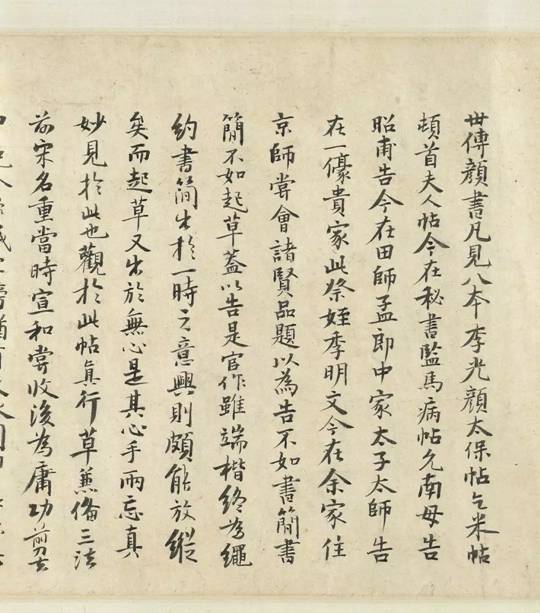 世傳顏書凡見八本李光顏太保帖乞米帖
頓首夫人帖今在秘書監馬病帖允南母告
昭甫告今在田師孟郎中家太子太師告
在一儫貴家此祭姪季明文今在余家住
京師嘗會諸賢品題以為告不如書簡書
簡不如起草蓋以告是官作雖端楷終為繩
約書簡出於一時之意興則頗能放縱
矣而起草又出於無心是其心手兩忘真
妙見於此也觀於此帖真行草兼備三法
前宋名重當時宣和嘗收後為庸功剪去